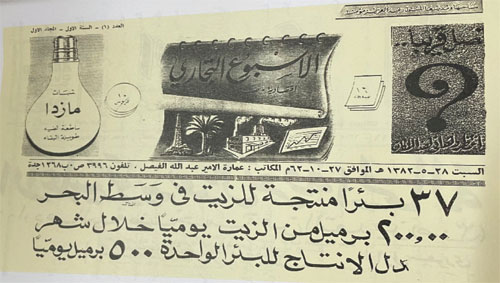 العدد - السنة الاولى - المجلد الاول
الاسبوع التجاري
١٦
١٠
قروش
مازدا
ساطعة الضوء
طويلة البقاء
السبت ٢٨-٥-١٣٨٢ هـ الموافق ٢٧-١٠-٦٢م المكاتب : عمارة الامير عبد الله الفيصل . تلفون ٣٩٩٦ ص.ب ١٢٦٨ جدة
٣٧ بئرا منتجة للزيت فى وسط البحر
٢٠٠,٠٠٠ برميل من الزيت يوميا خلال شهر
دل الانتاج للبئر الواحدة ٥٠٠ برميل يوميا